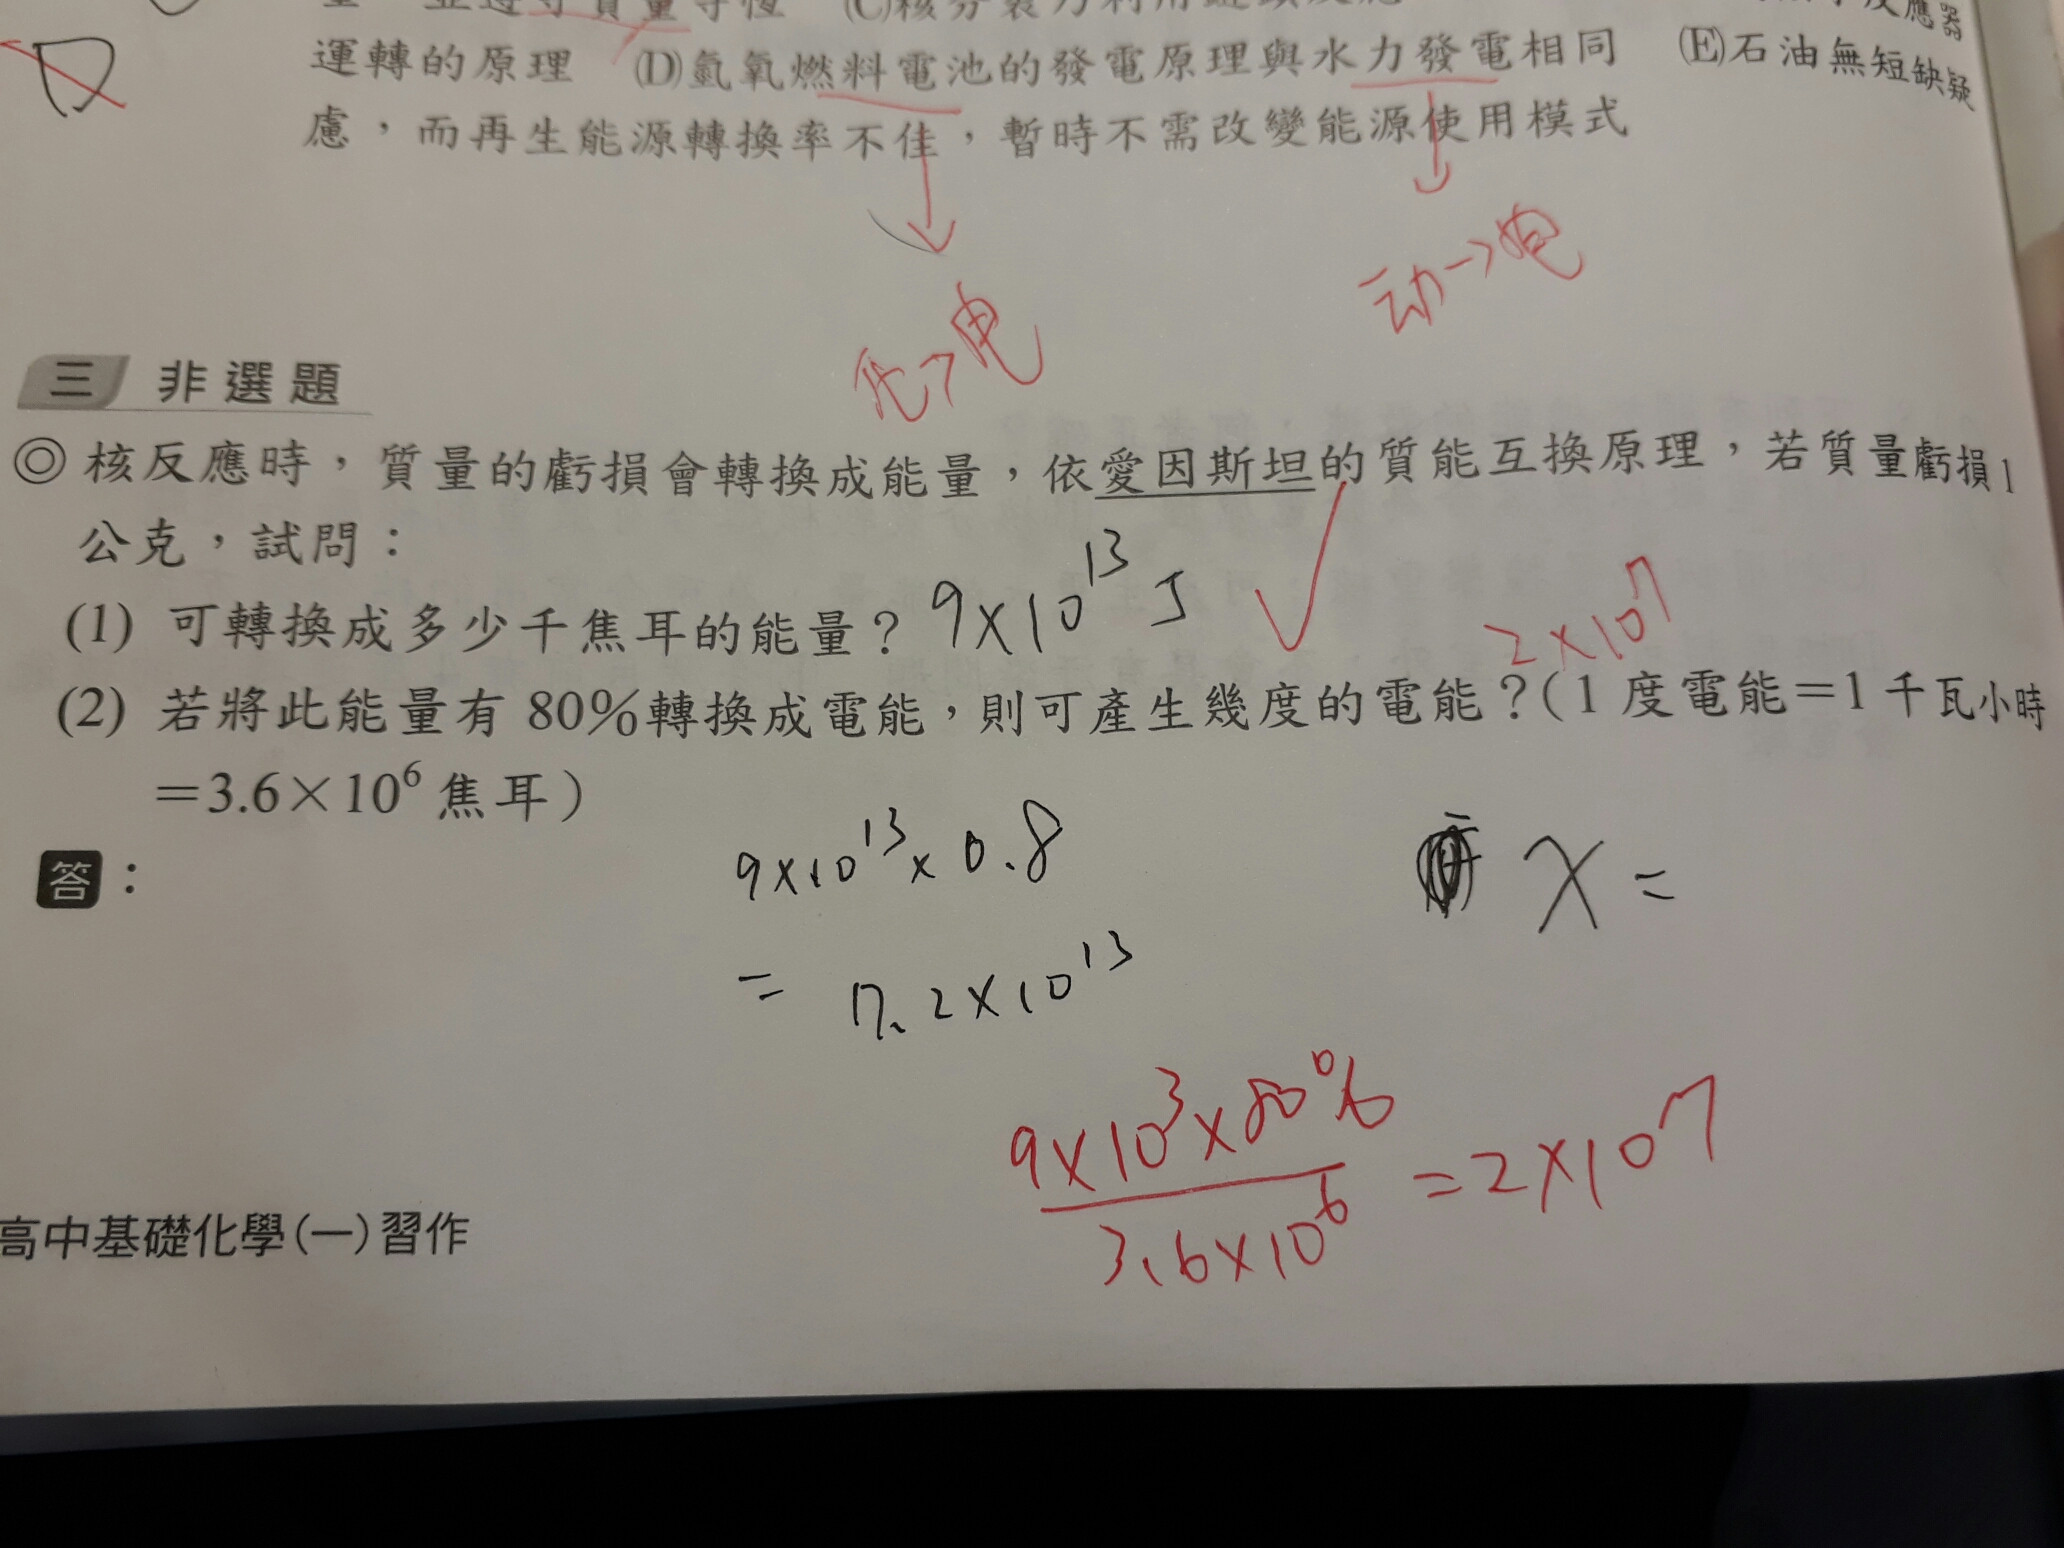 運轉的原理 (D)氫氧燃料電池的發電原理與水力發電相同 (E)石油無短缺疑
慮，而再生能源轉換率不佳，暫時不需改變能源使用模式
动→电
化→电
三 非選題
◎核反應時，質量的虧損會轉換成能量，依愛因斯坦的質能互換原理，若質量虧損1
公克，試問：
(1) 可轉換成多少千焦耳的能量？ 9×10¹³ J
2×10⁷
(2) 若將此能量有 80%轉換成電能，則可產生幾度的電能？(1 度電能=1 千瓦小時
=3.6×10⁶ 焦耳)
答：
9×10¹³×0.8
X=
= 7.2×10¹³
9×10³×80%
3.6×10⁶
=2×10⁷
高中基礎化學(一)習作